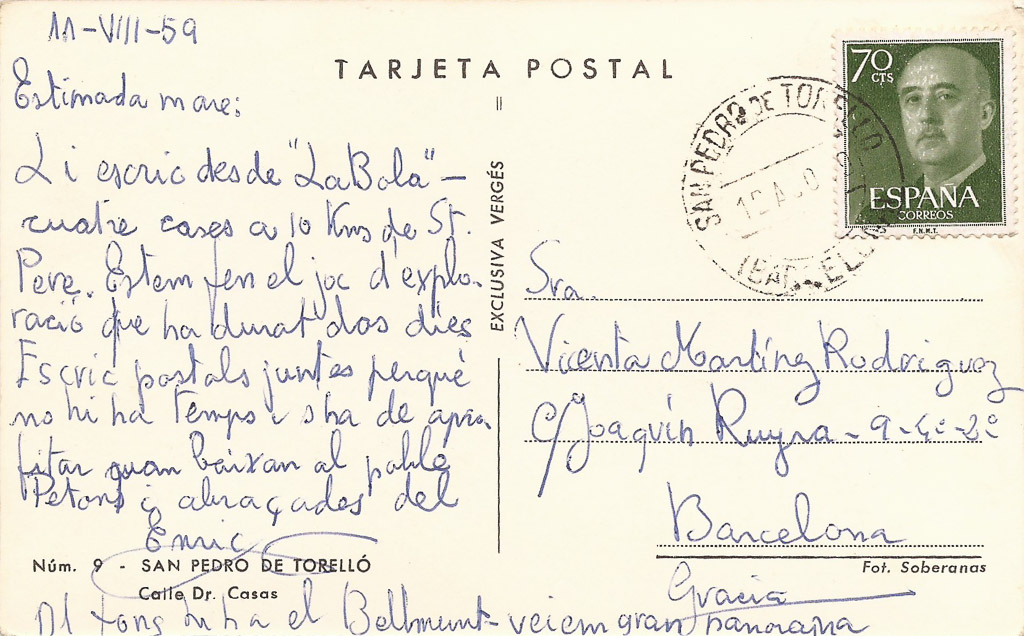 11-VIII-59
TARJETA POSTAL
Estimada mare:
Li escric desde "La Bola" -
cuatre cases a 10 Kms de St.
Pere. Estem fen el joc d'explo-
ració que ha durat dos dies
Escric postals juntes perquè
no hi ha temps i s'ha de apro-
fitar quan baixan al poble
Petons i abraçades del
Enric
Núm. 9 - SAN PEDRO DE TORELLÓ
Calle Dr. Casas
Al fons hi ha el Bellmunt- veiem gran panorama
EXCLUSIVA VERGÉS
70
CTS
ESPAÑA
CORREOS
F.N.M.T.
SAN PEDRO DE TORELLO
(BARCELONA)
Sra.
Vicenta Martínez Rodriguez
C/ Joaquín Ruyra - 9-4º-2º
Barcelona
Fot. Soberanas
Gracia